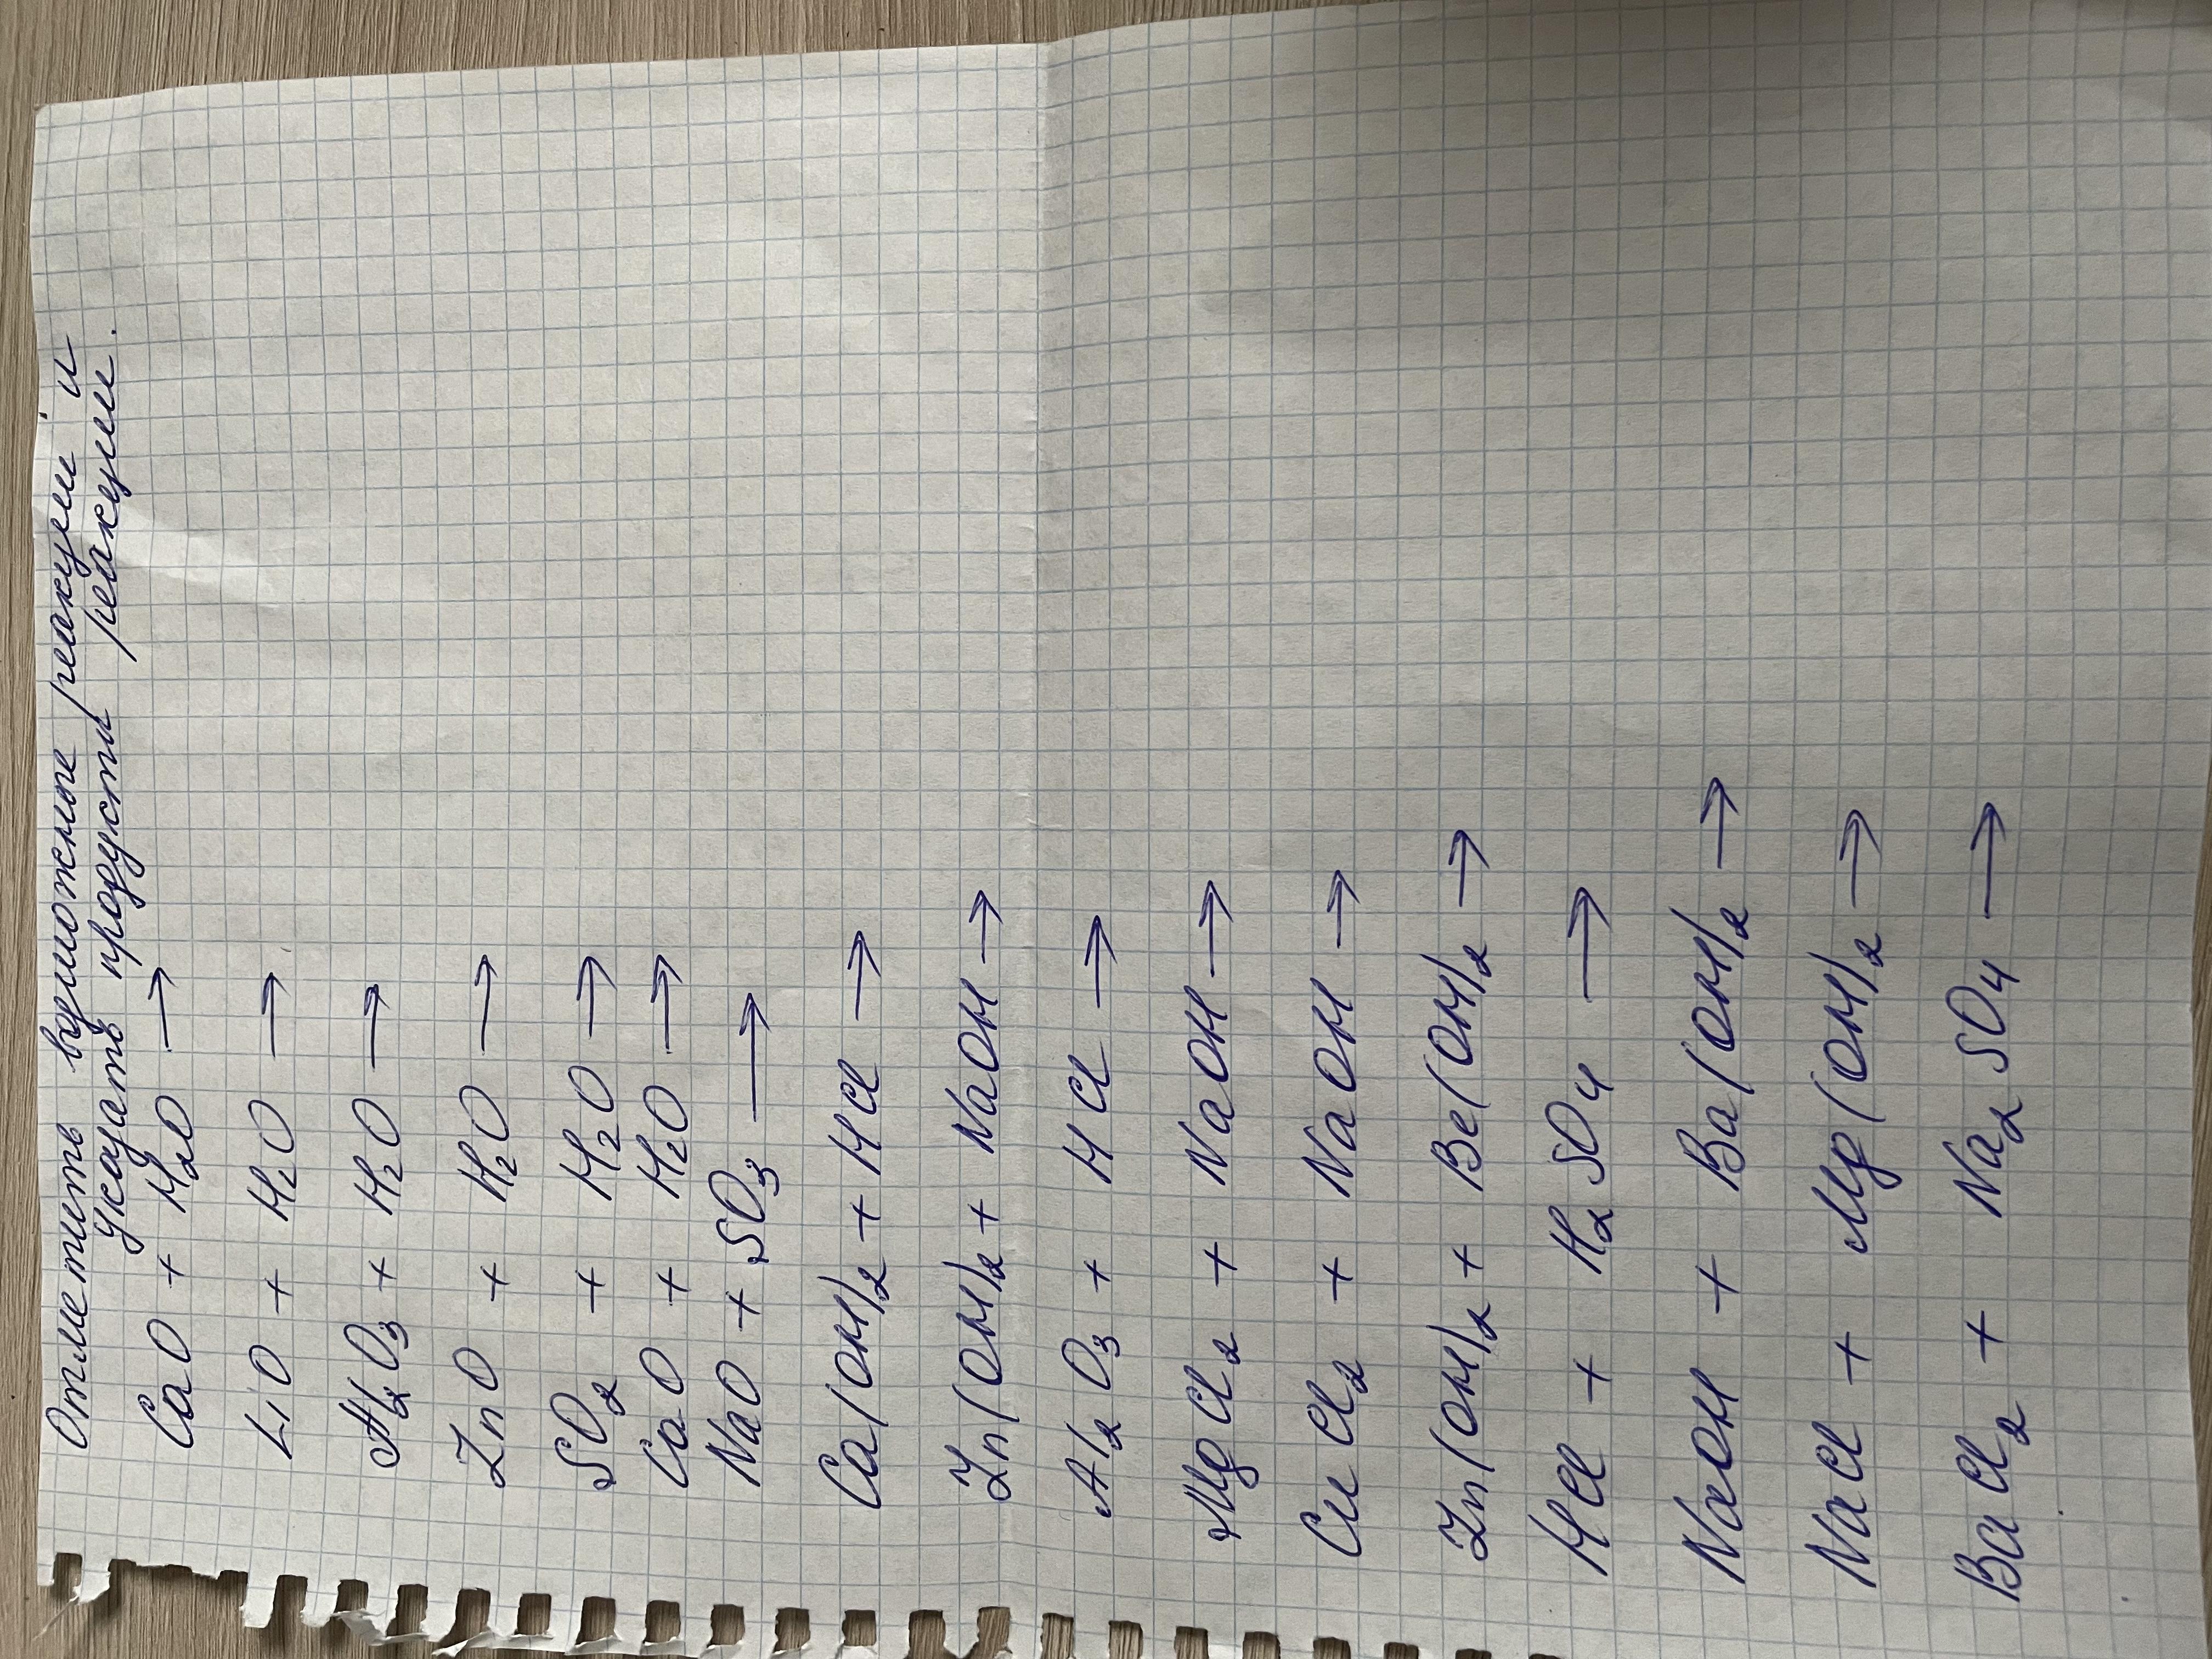 Отметить возможные реакции и
указать продукты реакции.
CaO + H₂O →
LiO + H₂O →
Al₂O₃ + H₂O →
ZnO + H₂O →
SO₂ + H₂O →
CaO + H₂O →
NaO + SO₃ →
Ca(OH)₂ + HCl →
Zn(OH)₂ + NaOH →
Al₂O₃ + HCl →
MgCl₂ + NaOH →
CuCl₂ + NaOH →
Zn(OH)₂ + Be(OH)₂ →
HCl + H₂SO₄ →
NaOH + Ba(OH)₂ →
NaCl + Mg(OH)₂ →
BaCl₂ + Na₂SO₄ →